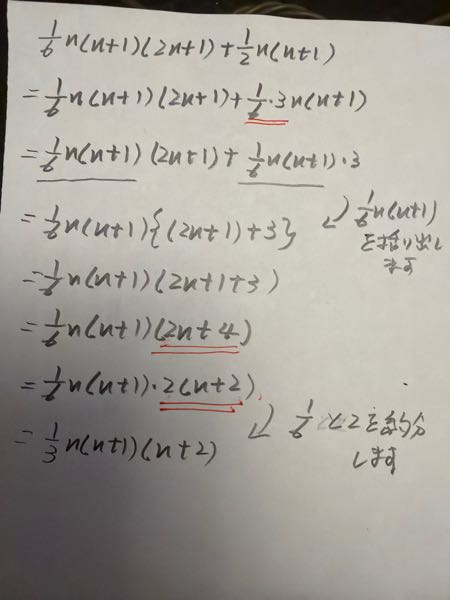 1/6 n(n+1)(2n+1)+1/2 n(n+1)
=1/6 n(n+1)(2n+1)+1/6・3n(n+1)
=1/6 n(n+1)(2n+1)+1/6 n(n+1)・3
=1/6 n(n+1){(2n+1)+3}
1/6 n(n+1)
を括り出し
ます
=1/6 n(n+1)(2n+1+3)
=1/6 n(n+1)(2n+4)
=1/6 n(n+1)・2(n+2)
1/6と2を約分
します
=1/3 n(n+1)(n+2)